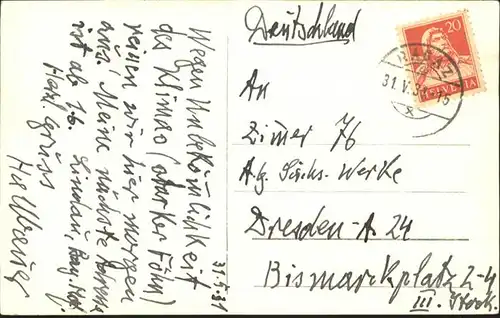 31.5.31
Wegen Unbekömmlichkeit
des Klimas (starker Föhn)
reisen wir hier morgen
aus. Meine nächste Adresse
ist ab 1.6. Lindau, Bay.
Herzl. Gruss
Deutschland
An
Zimer 76
A.g. Sächs. Werke
Dresden-A 24
Bismarckplatz 2-4
III. Stock.
20
HELVETIA
RAGAZ
31.V.31